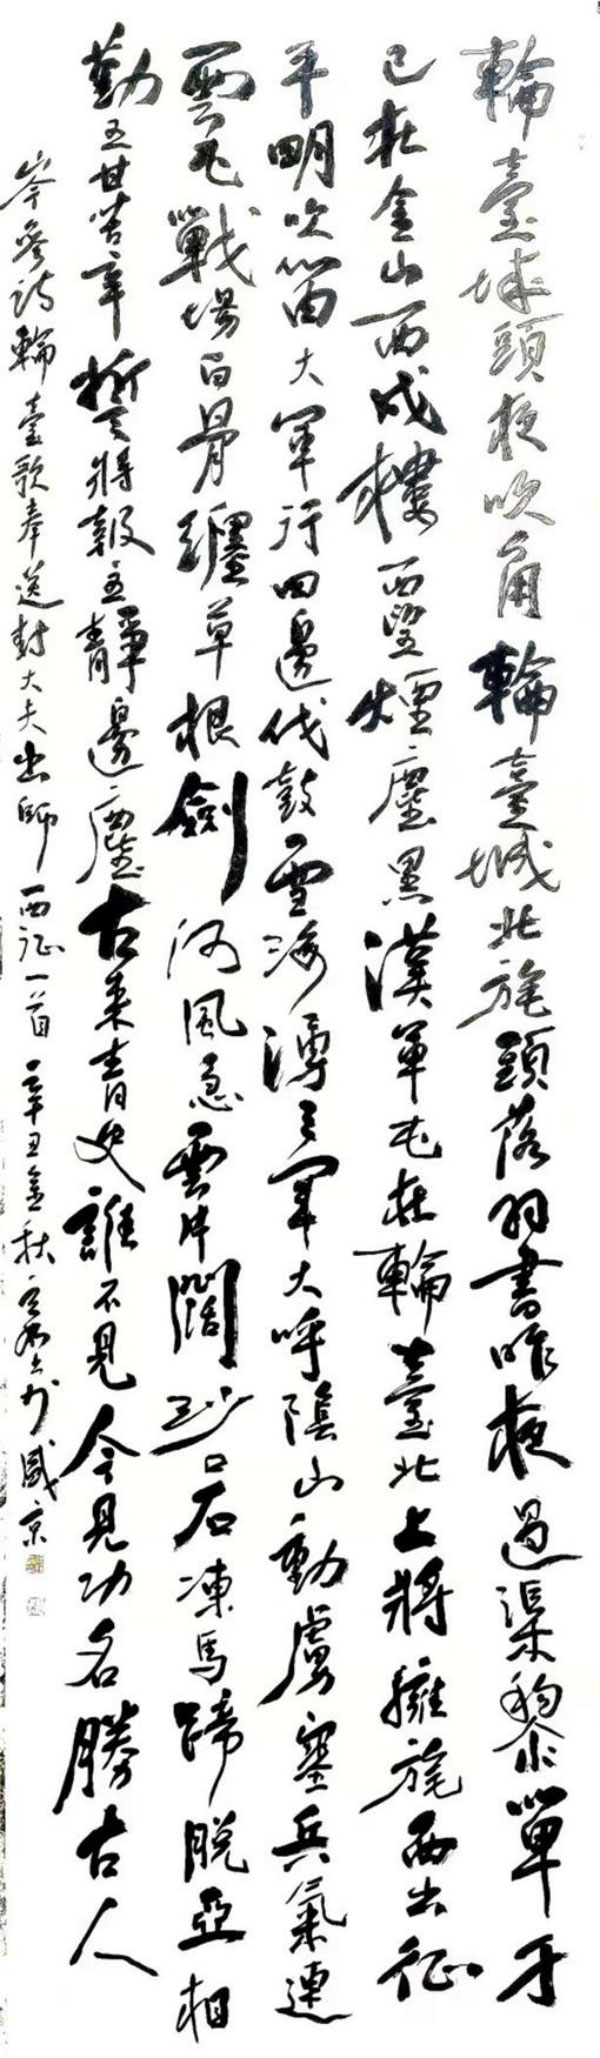 輪臺城頭夜吹角輪臺城北旄頭落羽書昨夜過渠黎單于
已在金山西戍樓西望煙塵黑漢軍屯在輪臺北上將擁旄西出征
平明吹笛大軍行四邊伐鼓雪海湧三軍大呼陰山動虜塞兵氣連
雲屯戰場白骨纏草根劍河風急雲片闊沙口石凍馬蹄脫亞相
勤王甘苦辛誓將報主靜邊塵古來青史誰不見今見功名勝古人
岑參詩輪臺歌奉送封大夫出師西征一首辛丑金秋於盛京